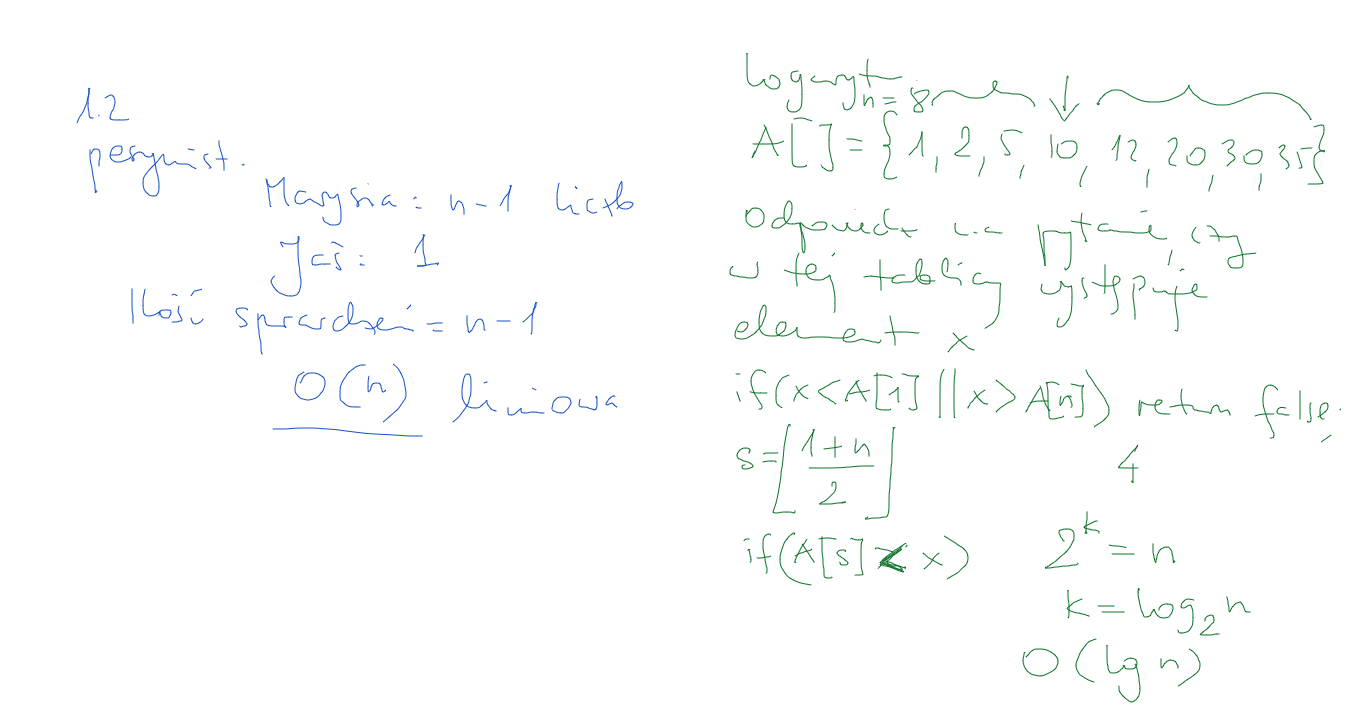 1.2
pesymist.
Marysia: n-1 liczb
Jaś: 1
Ilość sprawdzeń = n-1
O(n) liniowa
logarytm
n=8
A[] = {1, 2, 5, 10, 12, 20, 30, 35}
Odpowiedz na pytanie, czy
w tej tablicy występuje
element x
if(x<A[1] || x>A[n]) return false;
s=⌊(1+n)/2⌋
4
if(A[s] < x)
2^k = n
k = log₂n
O(lg n)